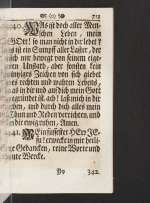 ❧ (o) ❧ 713
340. Was ist doch aller Men-
schen Leben, mein
GOtt! so man nicht in dir lebet?
ein Sumpff aller Laster, der
sich nur bewegt von seinem eige-
nen Unflath, aber sonsten kein
einiges Zeichen von sich giebet
des rechten und wahren Lebens,
als in dir und auf dich mein Gott
gegründet ist. ach! laß mich in dir
leben, und durch dich alles mein
Thun und Reden verrichten, und
in dir ewig ruhen, Amen.
341. Mein süssester HErr JE-
su! erwecke in mir heili-
ge Gedancken, reine Worte und
gute Wercke.
Yy 342.